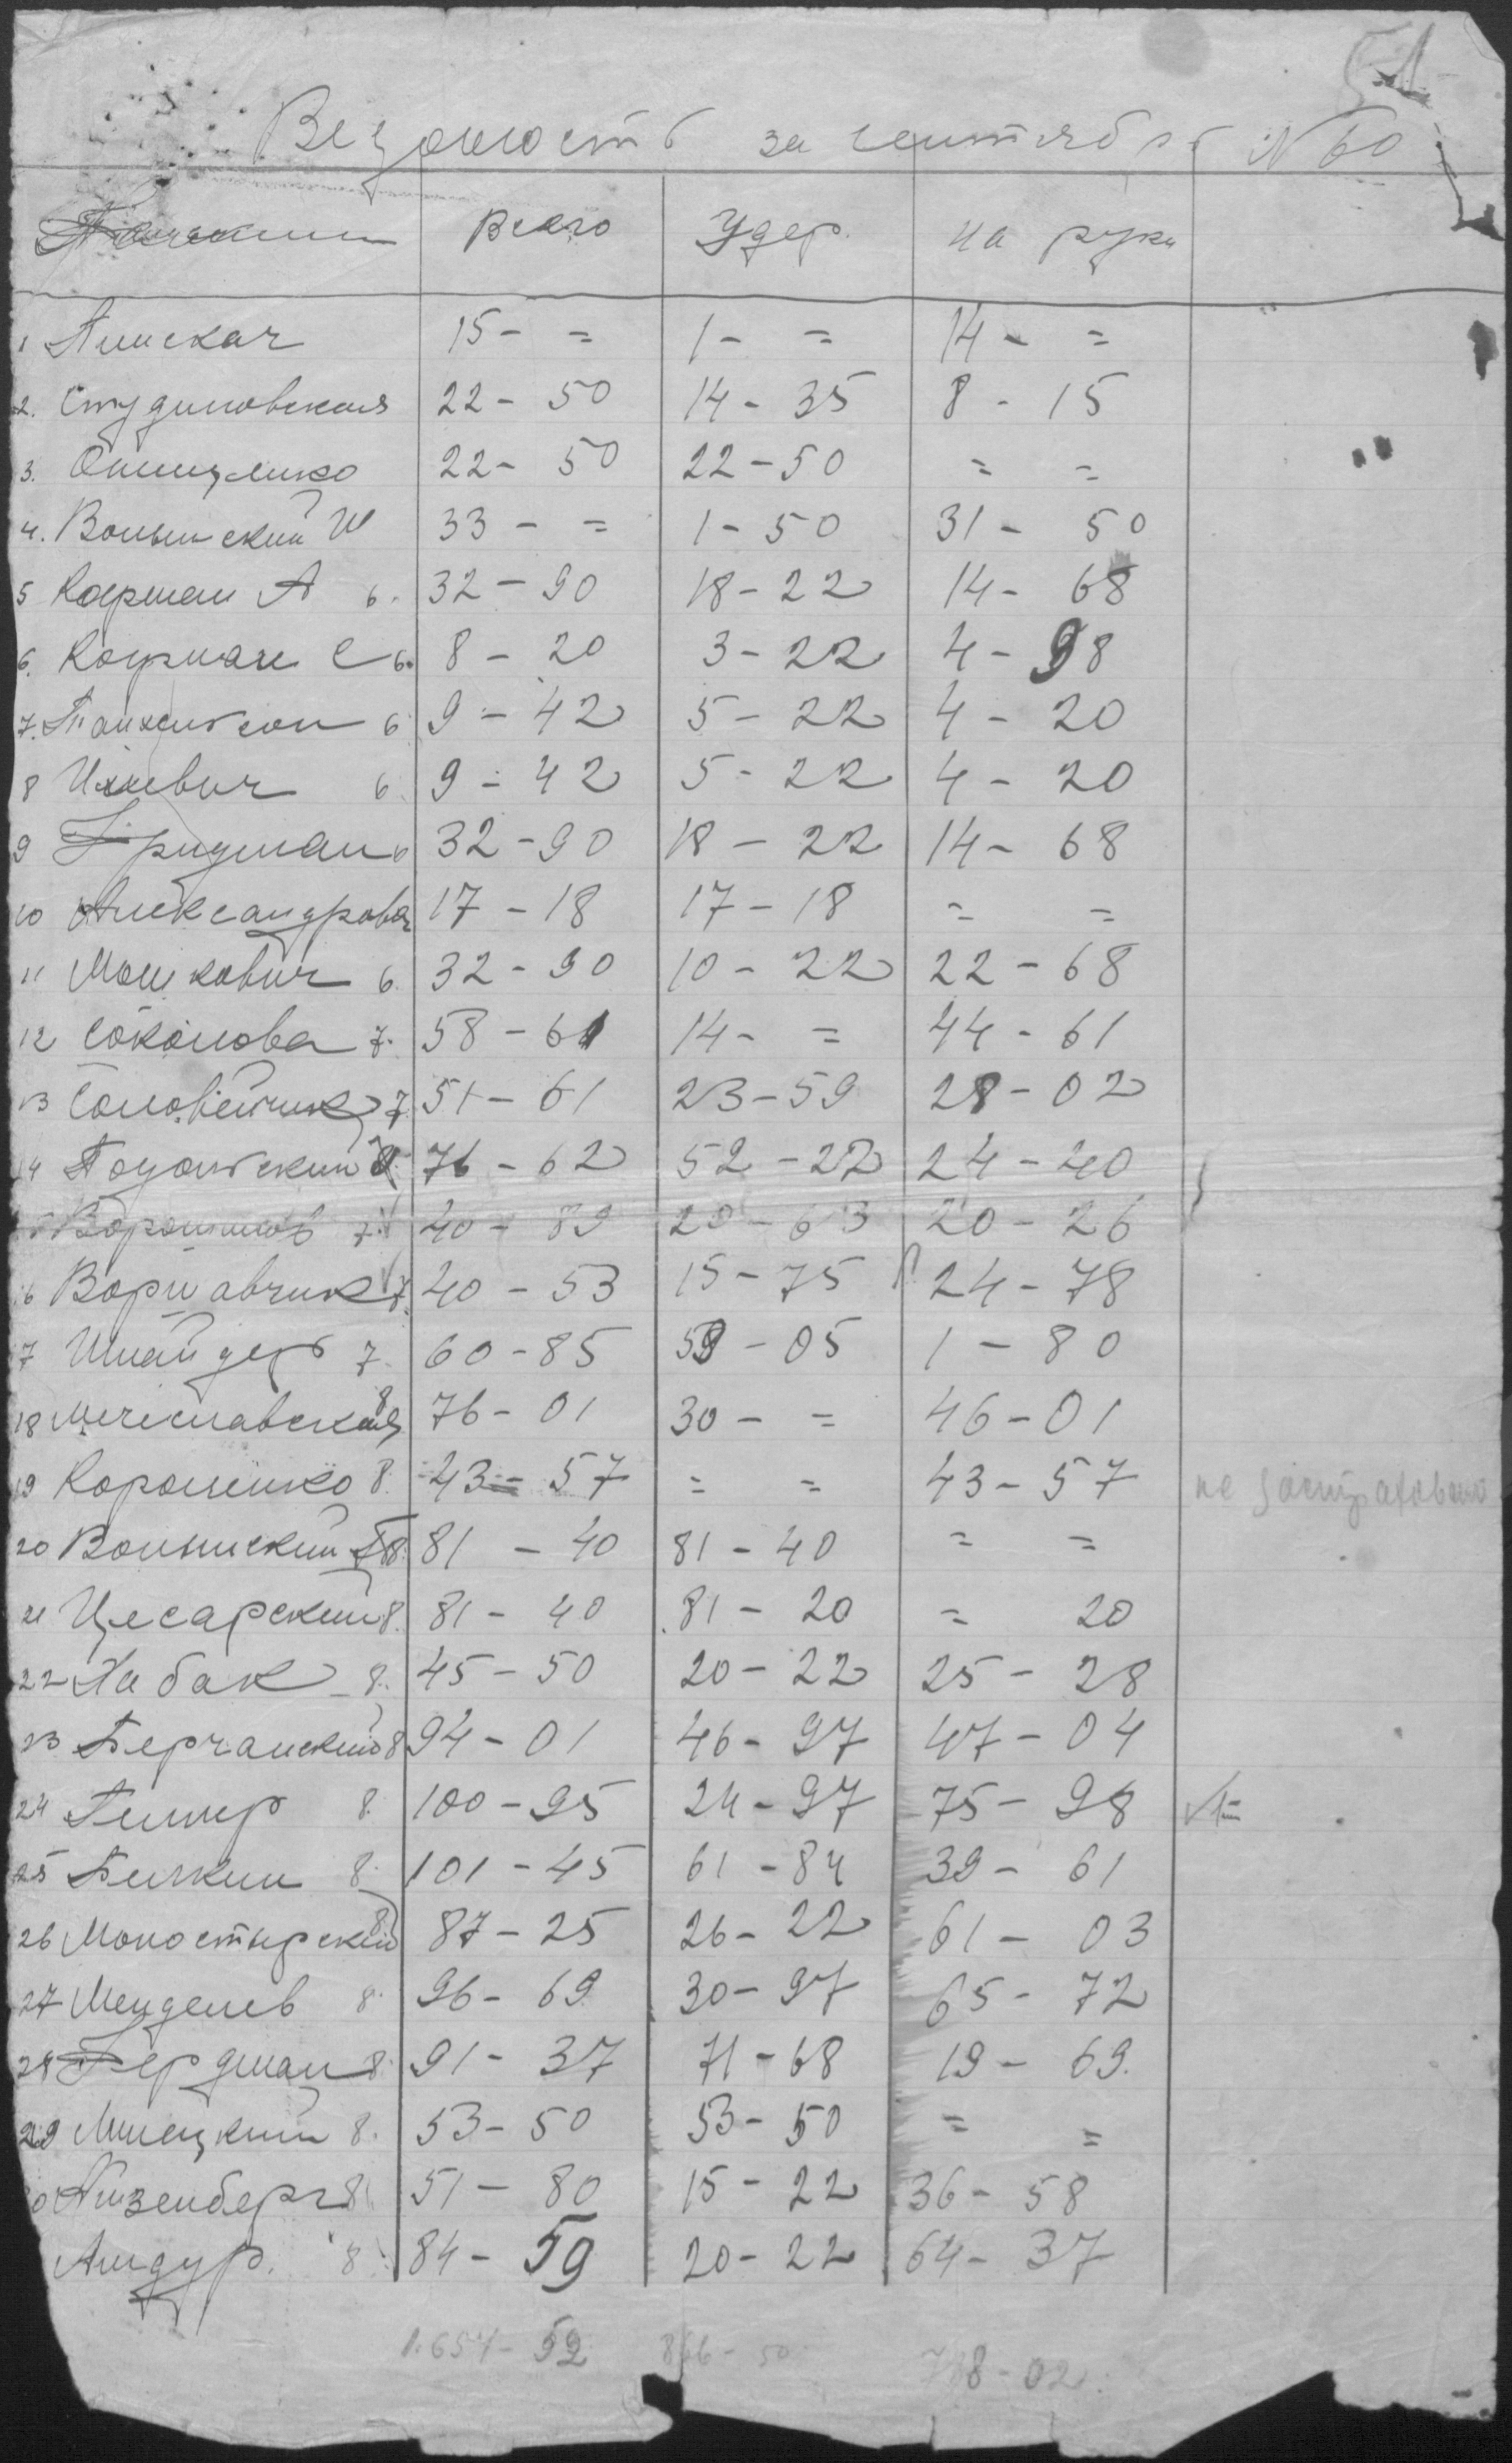 51
Ведомость за сентябрь N 60
Всего Удер. на руки
1 Пинская 15 - = 1 - = 14 - =
2. Студиновская 22 - 50 14 - 35 8 - 15
3. 22 - 50 22 - 50 = =
4. Волынский Ш 33 - = 1 - 50 31 - 50
5 Кауфман А 6. 32 - 90 18 - 22 14 - 68
6. Кауфман С 6. 8 - 20 3 - 22 4 - 98
7. 6 9 - 42 5 - 22 4 - 20
8 6 9 - 42 5 - 22 4 - 20
9 Фридман 6 32 - 90 18 - 22 14 - 68
10 Александрова 17 - 18 17 - 18 = =
11 Мошкович 6. 32 - 90 10 - 22 22 - 68
12 Соколова 7. 58 - 61 14 - = 44 - 61
13 Соловейчик 7 51 - 61 23 - 59 28 - 02
14 Подольский 8. 76 - 62 52 - 22 24 - 40
7. 40 - 89 20 - 63 20 - 26
16 Варшавчик 7. 40 - 53 15 - 75 24 - 78
17 Шнайдер 7. 60 - 85 59 - 05 1 - 80
18 Мечеславская 8 76 - 01 30 - = 46 - 01
19 Короленко 8. 43 - 57 = = 43 - 57 не застрахован
20 Волынский 8. 81 - 40 81 - 40 = =
21 Цесарский 8. 81 - 40 81 - 20 = 20
22 Хабак 8. 45 - 50 20 - 22 25 - 28
23 Берчанский 8 94 - 01 46 - 97 47 - 04
24 8. 100 - 95 24 - 97 75 - 98
25 Белкин 8. 101 - 45 61 - 84 39 - 61
26 Моностырский 8 87 - 25 26 - 22 61 - 03
27 Менделев 8. 96 - 69 30 - 97 65 - 72
28 Фердман 8. 91 - 37 71 - 68 19 - 69.
29 Милецкий 8. 53 - 50 53 - 50 = =
30 Айзенберг 8. 51 - 80 15 - 22 36 - 58
Андур. 8. 84 - 59 20 - 22 64 - 37
1.654 - 52 866 - 50 788 - 02.